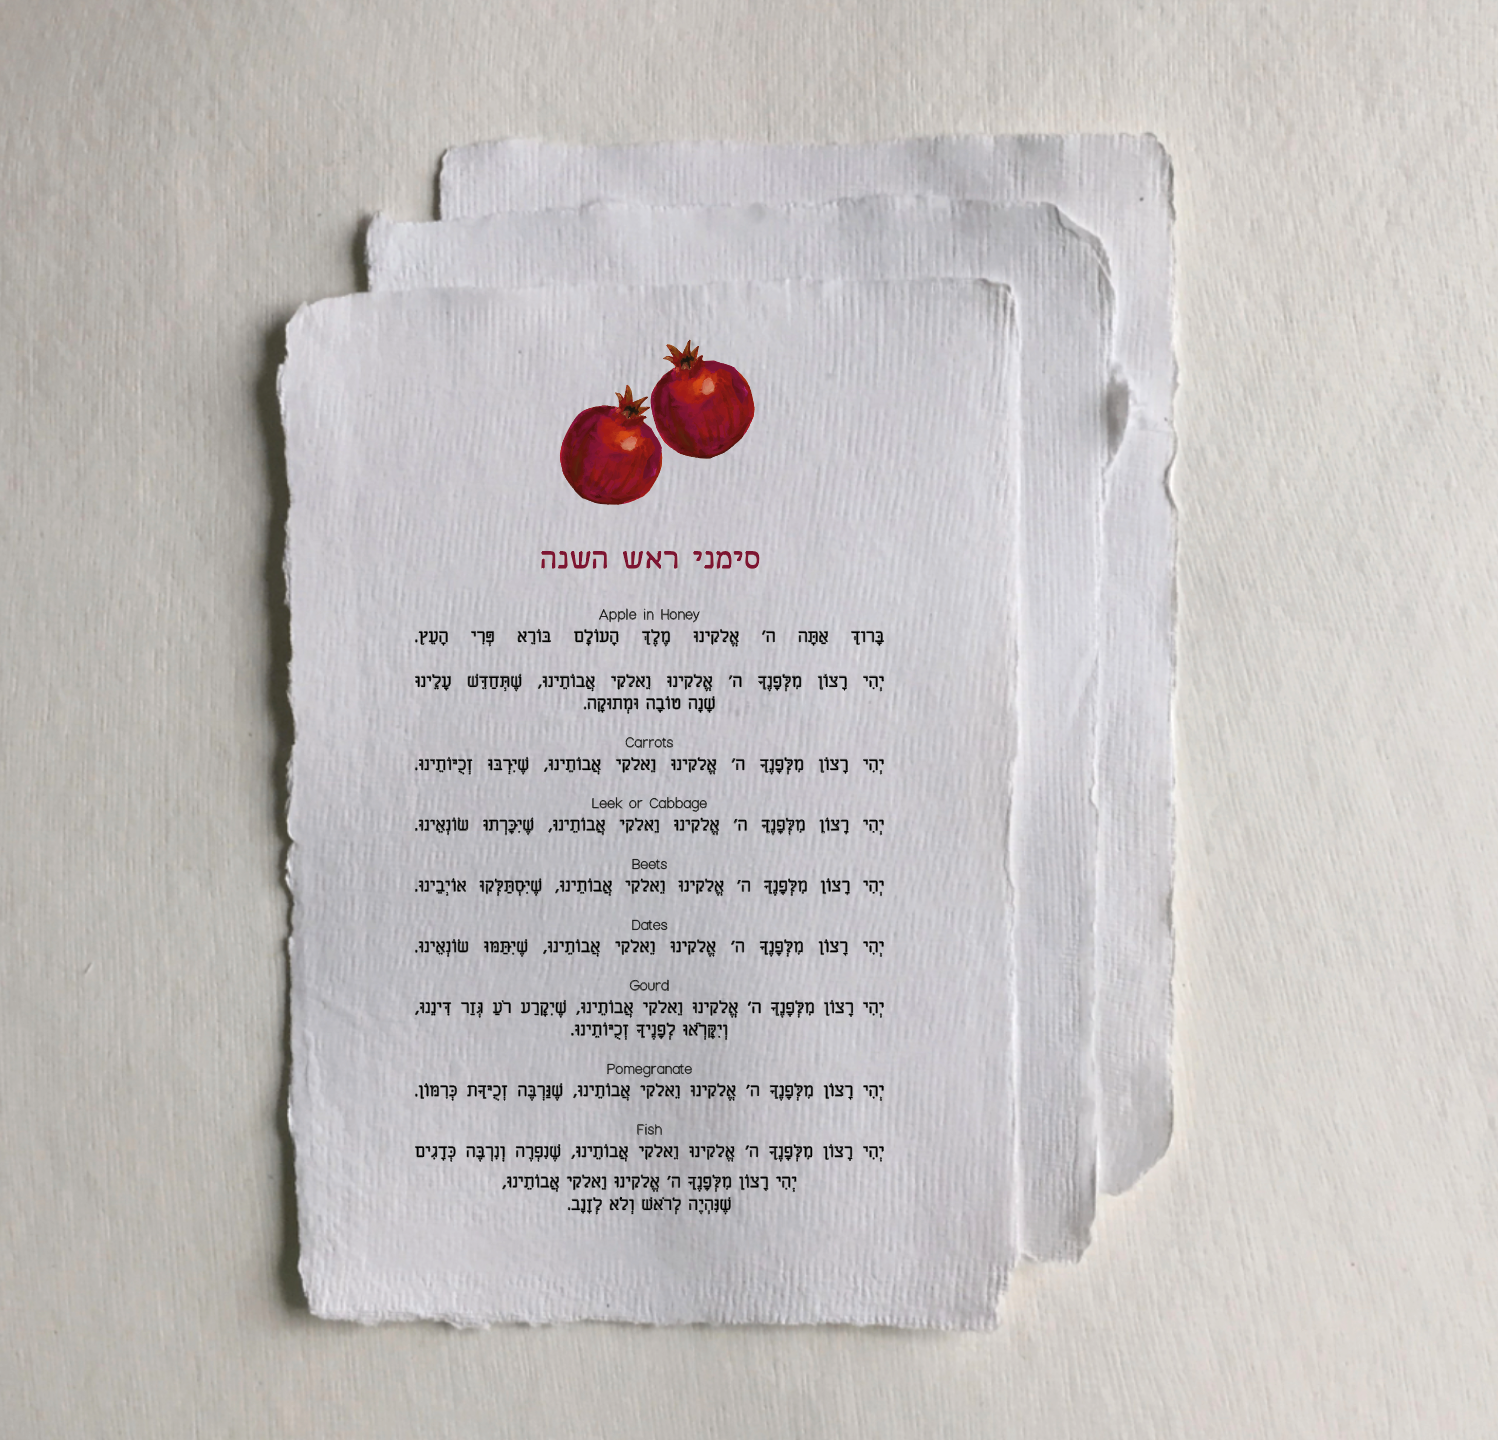 סימני ראש השנה
Apple in Honey
בָּרוּךְ אַתָּה ה׳ אֱלֹקֵינוּ מֶלֶךְ הָעוֹלָם בּוֹרֵא פְּרִי הָעֵץ.
יְהִי רָצוֹן מִלְּפָנֶךָ ה׳ אֱלֹקֵינוּ וֵאלֹקֵי אֲבוֹתֵינוּ, שֶׁתְּחַדֵּשׁ עָלֵינוּ
שָׁנָה טוֹבָה וּמְתוּקָה.
Carrots
יְהִי רָצוֹן מִלְּפָנֶךָ ה׳ אֱלֹקֵינוּ וֵאלֹקֵי אֲבוֹתֵינוּ, שֶׁיִּרְבּוּ זְכֻיּוֹתֵינוּ.
Leek or Cabbage
יְהִי רָצוֹן מִלְּפָנֶךָ ה׳ אֱלֹקֵינוּ וֵאלֹקֵי אֲבוֹתֵינוּ, שֶׁיִּכָּרְתוּ שׂוֹנְאֵינוּ.
Beets
יְהִי רָצוֹן מִלְּפָנֶךָ ה׳ אֱלֹקֵינוּ וֵאלֹקֵי אֲבוֹתֵינוּ, שֶׁיִּסְתַּלְּקוּ אוֹיְבֵינוּ.
Dates
יְהִי רָצוֹן מִלְּפָנֶךָ ה׳ אֱלֹקֵינוּ וֵאלֹקֵי אֲבוֹתֵינוּ, שֶׁיִּתַּמּוּ שׂוֹנְאֵינוּ.
Gourd
יְהִי רָצוֹן מִלְּפָנֶךָ ה׳ אֱלֹקֵינוּ וֵאלֹקֵי אֲבוֹתֵינוּ, שֶׁיִקָרַע רֹעַ גְּזַר דִּינֵנוּ,
וְיִקָּרְאוּ לְפָנֶיךָ זְכֻיּוֹתֵינוּ.
Pomegranate
יְהִי רָצוֹן מִלְּפָנֶךָ ה׳ אֱלֹקֵינוּ וֵאלֹקֵי אֲבוֹתֵינוּ, שֶׁנַּרְבֶּה זְכֻיֹּת כְּרִמּוֹן.
Fish
יְהִי רָצוֹן מִלְּפָנֶךָ ה׳ אֱלֹקֵינוּ וֵאלֹקֵי אֲבוֹתֵינוּ, שֶׁנִפְרֶה וְנִרְבֶּה כְּדָגִים
יְהִי רָצוֹן מִלְּפָנֶךָ ה׳ אֱלֹקֵינוּ וֵאלֹקֵי אֲבוֹתֵינוּ,
שֶׁנִּהְיֶה לְרֹאשׁ וְלֹא לְזָנָב.